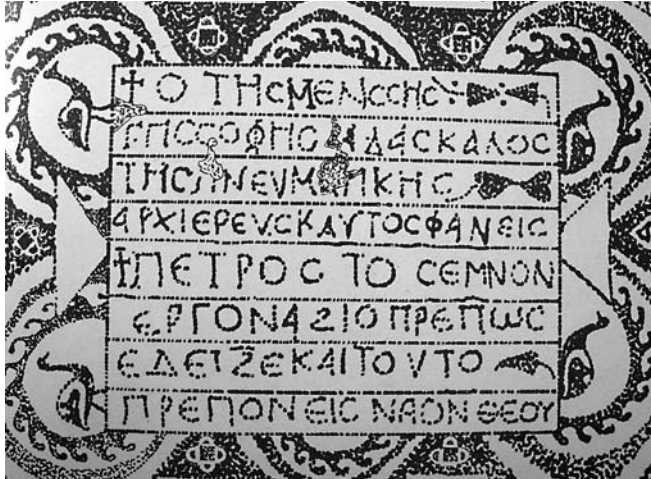 † Ο ΤΗϹ ΜΕΛΙϹϹΗϹ
ΤΗϹ ϹΟΦΗϹ ΔΑϹΚΑΛΟϹ
ΤΗϹ ΠΝΕΥΜΑΤΙΚΗϹ
ΑΡΧΙΕΡΕΥϹ Κ ΑΥΤΟϹ ΦΑΝΕΙϹ
† ΠΕΤΡΟϹ ΤΟ ϹΕΜΝΟΝ
ΕΡΓΟΝ ΑΞΙΟΠΡΕΠΩϹ
ΕΔΕΙΞΕ ΚΑΙ ΤΟΥΤΟ
ΠΡΕΠΟΝ ΕΙϹ ΝΑΟΝ ΘΕΟΥ